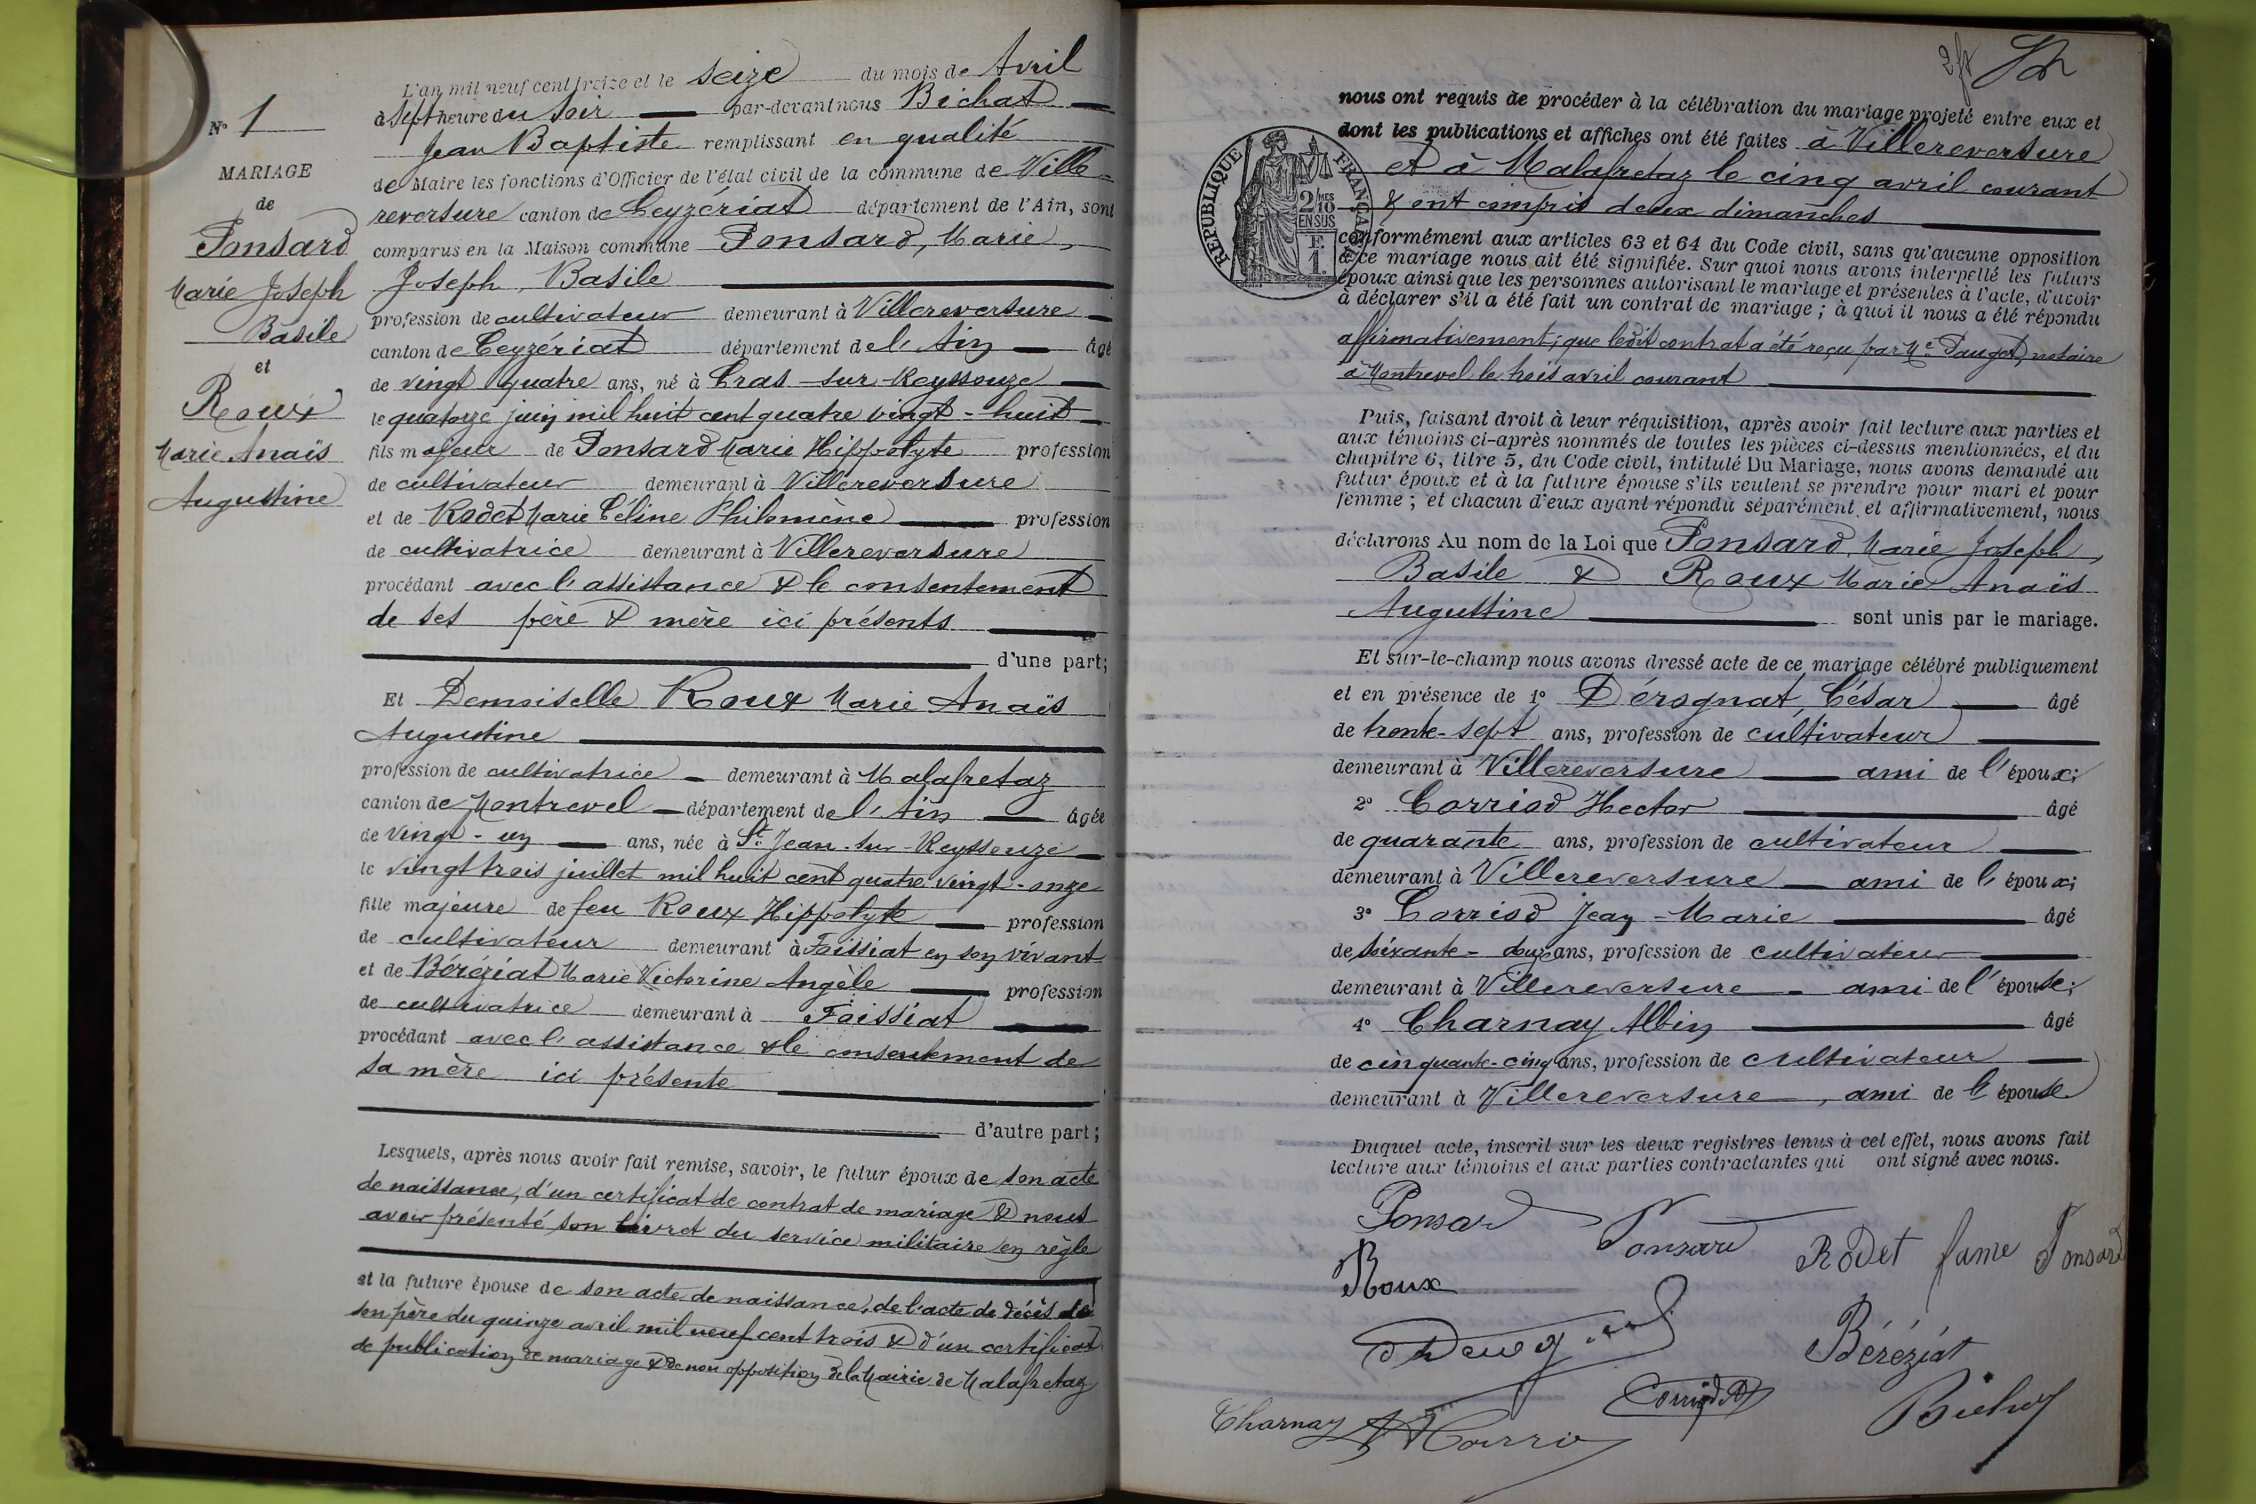 N° 1
MARIAGE
de
Ponsard
Marie Joseph
Basile
et
Roux
Marie Anaïs
Augustine
L'an mil neuf cent treize et le seize du mois de Avril
à sept heure du soir par-devant nous Bichat
Jean Baptiste remplissant en qualité
de Maire les fonctions d'Officier de l'état civil de la commune de Ville-
reversure canton de Ceyzériat département de l'Ain, sont
comparus en la Maison commune Ponsard, Marie,
Joseph, Basile
profession de cultivateur demeurant à Villereversure
canton de Ceyzériat département de l'Ain âgé
de vingt quatre ans, né à Cras-sur-Reyssouze
le quatorze juin mil huit cent quatre vingt-huit
fils majeur de Ponsard Marie Hippolyte profession
de cultivateur demeurant à Villereversure
et de Rodet Marie Céline Philomène profession
de cultivatrice demeurant à Villereversure
procédant avec l'assistance & le consentement
de ses père & mère ici présents
d'une part;
Et Demoiselle Roux Marie Anaïs
Augustine
profession de cultivatrice demeurant à Malafretaz
canton de Montrevel département de l'Ain âgée
de vingt-un ans, née à St Jean-sur-Reyssouze
le vingt trois juillet mil huit cent quatre vingt-onze
fille majeure de feu Roux Hippolyte profession
de cultivateur demeurant à Foissiat en son vivant
et de Béréziat Marie Victorine Angèle profession
de cultivatrice demeurant à Foissiat
procédant avec l'assistance & le consentement de
sa mère ici présente
d'autre part;
Lesquels, après nous avoir fait remise, savoir, le futur époux de son acte
de naissance, d'un certificat de contrat de mariage & nous
avoir présenté son livret du service militaire en règle
et la future épouse de son acte de naissance, de l'acte de décès de
son père du quinze avril mil neuf cent trois & d'un certificat
de publication de mariage & de non opposition de la Mairie de Malafretaz
nous ont requis de procéder à la célébration du mariage projeté entre eux et
dont les publications et affiches ont été faites à Villereversure
et à Malafretaz le cinq avril courant
& ont compris deux dimanches
RÉPUBLIQUE FRANÇAISE
2/10MES
EN SUS
F.
1.
conformément aux articles 63 et 64 du Code civil, sans qu'aucune opposition
à ce mariage nous ait été signifiée. Sur quoi nous avons interpellé les futurs
époux ainsi que les personnes autorisant le mariage et présentes à l'acte, d'avoir
à déclarer s'il a été fait un contrat de mariage; à quoi il nous a été répondu
affirmativement; que ledit contrat a été reçu par Me Pauget, notaire
à Montrevel le trois avril courant
Puis, faisant droit à leur réquisition, après avoir fait lecture aux parties et
aux témoins ci-après nommés de toutes les pièces ci-dessus mentionnées, et du
chapitre 6, titre 5, du Code civil, intitulé Du Mariage, nous avons demandé au
futur époux et à la future épouse s'ils veulent se prendre pour mari et pour
femme; et chacun d'eux ayant répondu séparément et affirmativement, nous
déclarons Au nom de la Loi que Ponsard, Marie Joseph,
Basile & Roux Marie Anaïs
Augustine sont unis par le mariage.
Et sur-le-champ nous avons dressé acte de ce mariage célébré publiquement
et en présence de 1° Dérognat, César âgé
de trente-sept ans, profession de cultivateur
demeurant à Villereversure ami de l'époux;
2° Corriod Hector âgé
de quarante ans, profession de cultivateur
demeurant à Villereversure ami de l'époux;
3° Corriod Jean-Marie âgé
de soixante-douze ans, profession de cultivateur
demeurant à Villereversure ami de l'épouse;
4° Charnay Albin âgé
de cinquante-cinq ans, profession de cultivateur
demeurant à Villereversure, ami de l'épouse
Duquel acte, inscrit sur les deux registres tenus à cet effet, nous avons fait
lecture aux témoins et aux parties contractantes qui ont signé avec nous.
Ponsard Ponsard Rodet fame Ponsard
Roux
Béréziat
Charnay Corriod Bichat